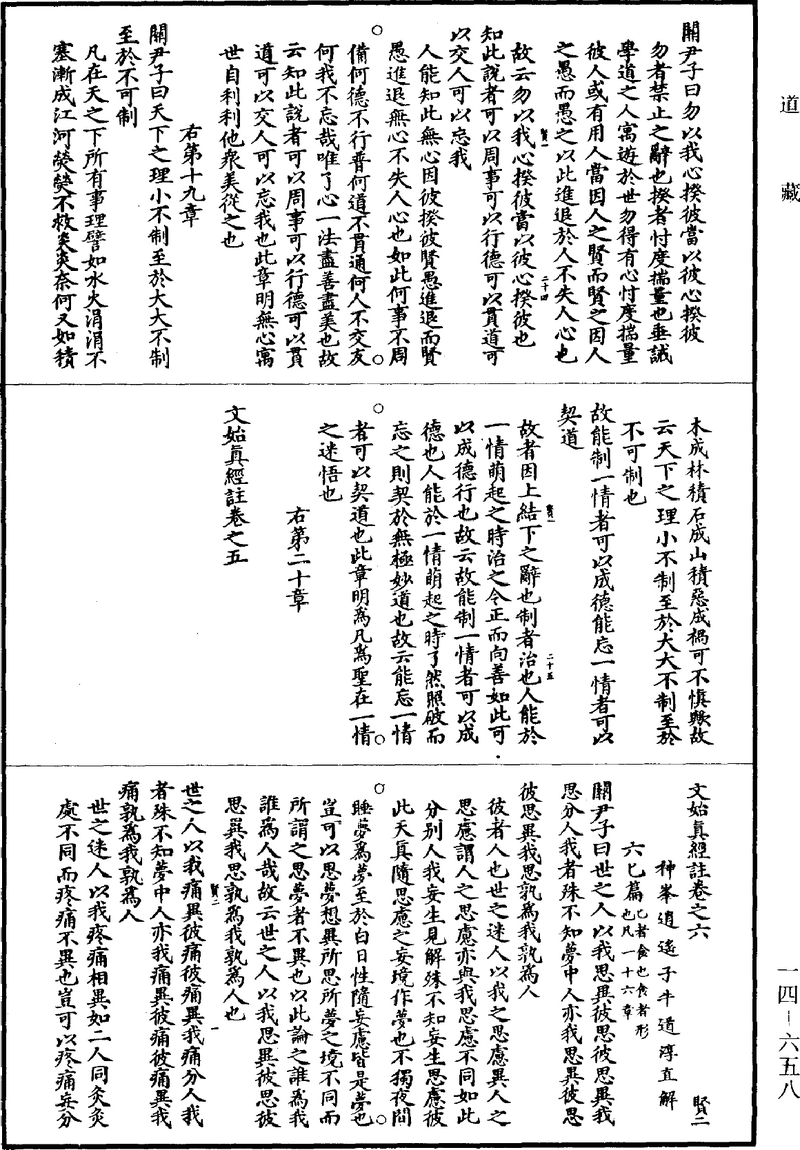 道藏
關尹子曰勿以我心揆彼當以彼心揆彼
勿者禁止之辭也揆者忖度揣量也垂誠
學道之人寓遊於世勿得有心忖度揣量
彼人或有用人當因人之賢而賢之因人
之愚而愚之以此進退於人不失人心也
故云勿以我心揆彼當以彼心揆彼也
賢一
二十四
知此說者可以周事可以行德可以貫道可
以交人可以忘我
人能知此無心因彼揆彼賢愚進退而賢
愚進退無心不失人心也如此何事不周
備何德不行普何道不貫通何人不交友
何我不忘哉唯了心一法盡善盡美也故
云知此說者可以周事可以行德可以貫
道可以交人可以忘我也此章明無心寓
世自利利他衆美從之也
右第十九章
關尹子曰天下之理小不制至於大大不制
至於不可制
凡在天之下所有事理譬如水火涓涓不
塞漸成江河熒熒不救炎炎奈何又如積
木成林積石成山積惡成禍可不慎歟故
云天下之理小不制至於大大不制至於
不可制也
故能制一情者可以成德能忘一情者可以
契道
賢一
二十五
故者因上結下之辭也制者治也人能於
一情萌起之時治之令正而向善如此可
以成德行也故云故能制一情者可以成
德也人能於一情萌起之時了然照破而
忘之則契於無極妙道也故云能忘一情
者可以契道也此章明爲凡爲聖在一情
之迷悟也
右第二十章
文始眞經註卷之五
文始眞經註卷之六
賢二
神峯逍遙子牛道淳直解
六匕篇
匕者食也食者形
也凡一十六章
關尹子曰世之人以我思異彼思彼思異我
思分人我者殊不知夢中人亦我思異彼思
彼思異我思孰爲我孰爲人
彼者人也世之迷人以我之思慮異人之
思慮謂人之思慮亦與我思慮不同如此
分別人我妄生見解殊不知妄生思慮彼
此天眞隨思慮之妄境作夢也不獨夜間
睡夢爲夢至於白日性隨妄慮皆是夢也
豈可以思夢想異所思所夢之境不同而
所謂之思夢者不異也以此論之誰爲我
誰爲人哉故云世之人以我思異彼思彼
思異我思孰爲我孰爲人也
賢二
一
世之人以我痛異彼痛彼痛異我痛分人我
者殊不知夢中人亦我痛異彼痛彼痛異我
痛孰爲我孰爲人
世之迷人以我疼痛相異如二人同灸灸
處不同而疼痛不異也豈可以疼痛妄分
一四－六五八